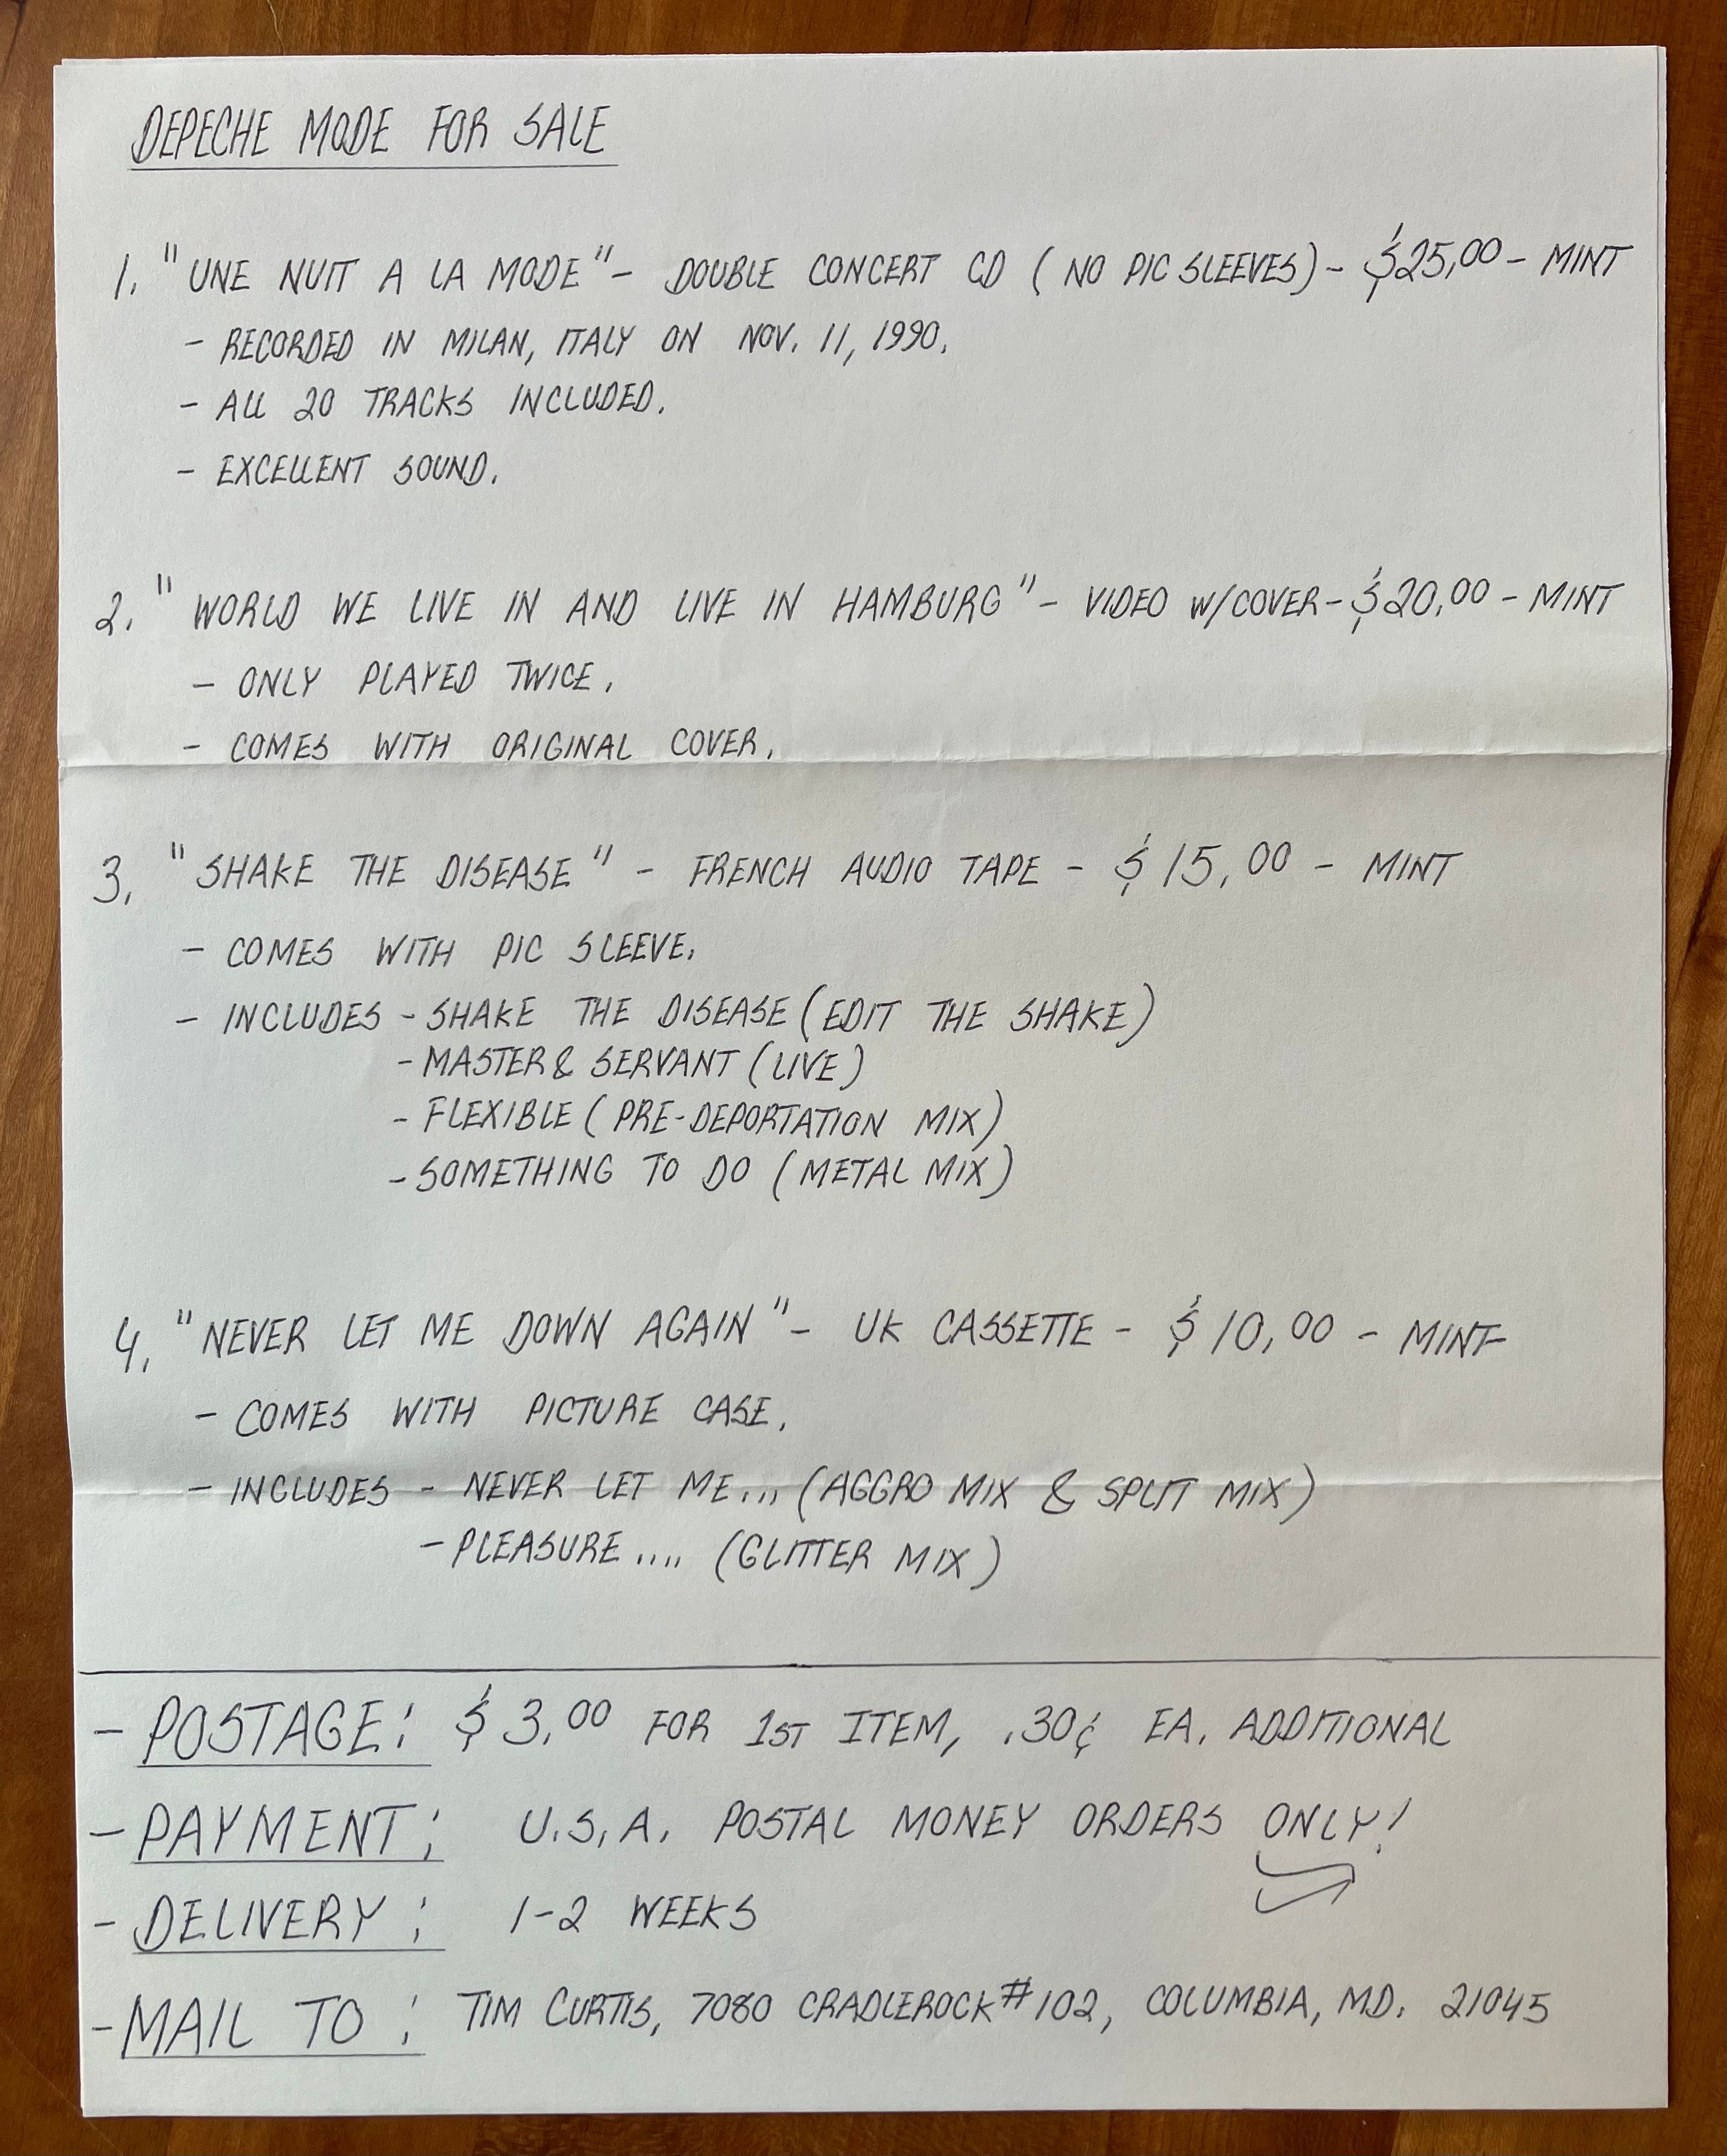 DEPECHE MODE FOR SALE
1. "UNE NUIT A LA MODE" - DOUBLE CONCERT CD (NO PIC SLEEVES) - $25.00 - MINT
- RECORDED IN MILAN, ITALY ON NOV. 11, 1990.
- ALL 20 TRACKS INCLUDED.
- EXCELLENT SOUND.
2. "WORLD WE LIVE IN AND LIVE IN HAMBURG" - VIDEO W/COVER - $20.00 - MINT
- ONLY PLAYED TWICE.
- COMES WITH ORIGINAL COVER.
3. "SHAKE THE DISEASE" - FRENCH AUDIO TAPE - $15.00 - MINT
- COMES WITH PIC SLEEVE.
- INCLUDES - SHAKE THE DISEASE (EDIT THE SHAKE)
- MASTER & SERVANT (LIVE)
- FLEXIBLE (PRE-DEPORTATION MIX)
- SOMETHING TO DO (METAL MIX)
4. "NEVER LET ME DOWN AGAIN" - UK CASSETTE - $10.00 - MINT
- COMES WITH PICTURE CASE.
- INCLUDES - NEVER LET ME... (AGGRO MIX & SPLIT MIX)
- PLEASURE.... (GLITTER MIX)
- POSTAGE: $3.00 FOR 1ST ITEM, .30¢ EA. ADDITIONAL
- PAYMENT: U.S.A. POSTAL MONEY ORDERS ONLY!
- DELIVERY: 1-2 WEEKS
- MAIL TO: TIM CURTIS, 7080 CRADLEROCK #102, COLUMBIA, MD. 21045